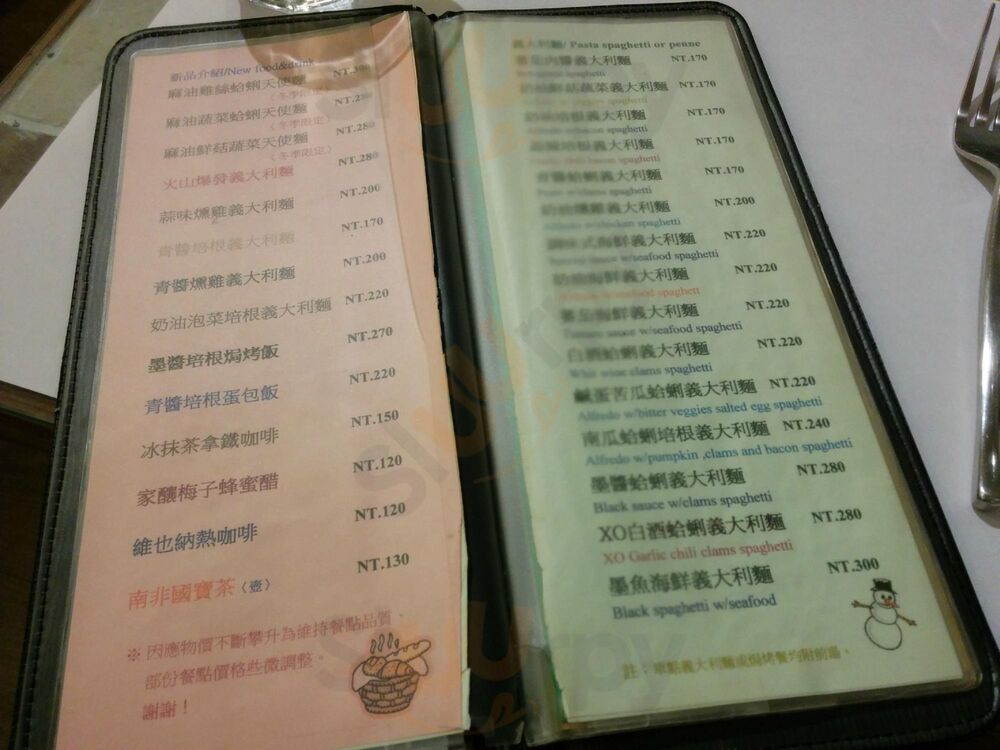 新品介紹/New food&drink
麻油雞絲蛤蜊天使麵 NT.300
(冬季限定)
麻油蔬菜蛤蜊天使麵 NT.280
(冬季限定)
麻油鮮菇蔬菜天使麵 NT.280
(冬季限定)
火山爆發義大利麵 NT.280
蒜味燻雞義大利麵 NT.200
青醬培根義大利麵 NT.170
青醬燻雞義大利麵 NT.200
奶油泡菜培根義大利麵 NT.220
墨醬培根焗烤飯 NT.270
青醬培根蛋包飯 NT.220
冰抹茶拿鐵咖啡 NT.150
家釀梅子蜂蜜醋 NT.120
維也納熱咖啡 NT.120
南非國寶茶(壺) NT.130
※ 因應物價不斷攀升為維持餐點品質、
部份餐點價格些微調整
謝謝！
義大利麵/ Pasta spaghetti or penne
蕃茄肉醬義大利麵 NT.170
spaghetti
義大利麵 NT.170
spaghetti
培根義大利麵 NT.170
spaghetti
培根義大利麵 NT.170
bacon spaghetti
青醬蛤蜊義大利麵 NT.170
w/clams spaghetti
燻雞義大利麵 NT.200
Alfredo w/chicken spaghetti
式海鮮義大利麵 NT.220
sauce w/seafood spaghetti
海鮮義大利麵 NT.220
w/seafood spaghetti
海鮮義大利麵 NT.220
sauce w/seafood spaghetti
白酒蛤蜊義大利麵 NT.220
Whit wine clams spaghetti
鹹蛋苦瓜蛤蜊義大利麵 NT.220
Alfredo w/bitter veggies salted egg spaghetti
南瓜蛤蜊培根義大利麵 NT.240
Alfredo w/pumpkin ,clams and bacon spaghetti
墨醬蛤蜊義大利麵 NT.280
Black sauce w/clams spaghetti
XO白酒蛤蜊義大利麵 NT.280
XO Garlic chili clams spaghetti
墨魚海鮮義大利麵 NT.300
Black spaghetti w/seafood
註：單點義大利麵或焗烤餐均附前湯、